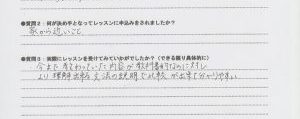 ●質問2：何が決め手となってレッスンに申込みをされましたか？
家から近いこと
●質問3：実際にレッスンを受けてみていかがでしたか？（できる限り具体的に）
・今まで教わっていた内容が教科書的なのに対し
より理解出来る文法の説明で比較が出来て分かりやすい。